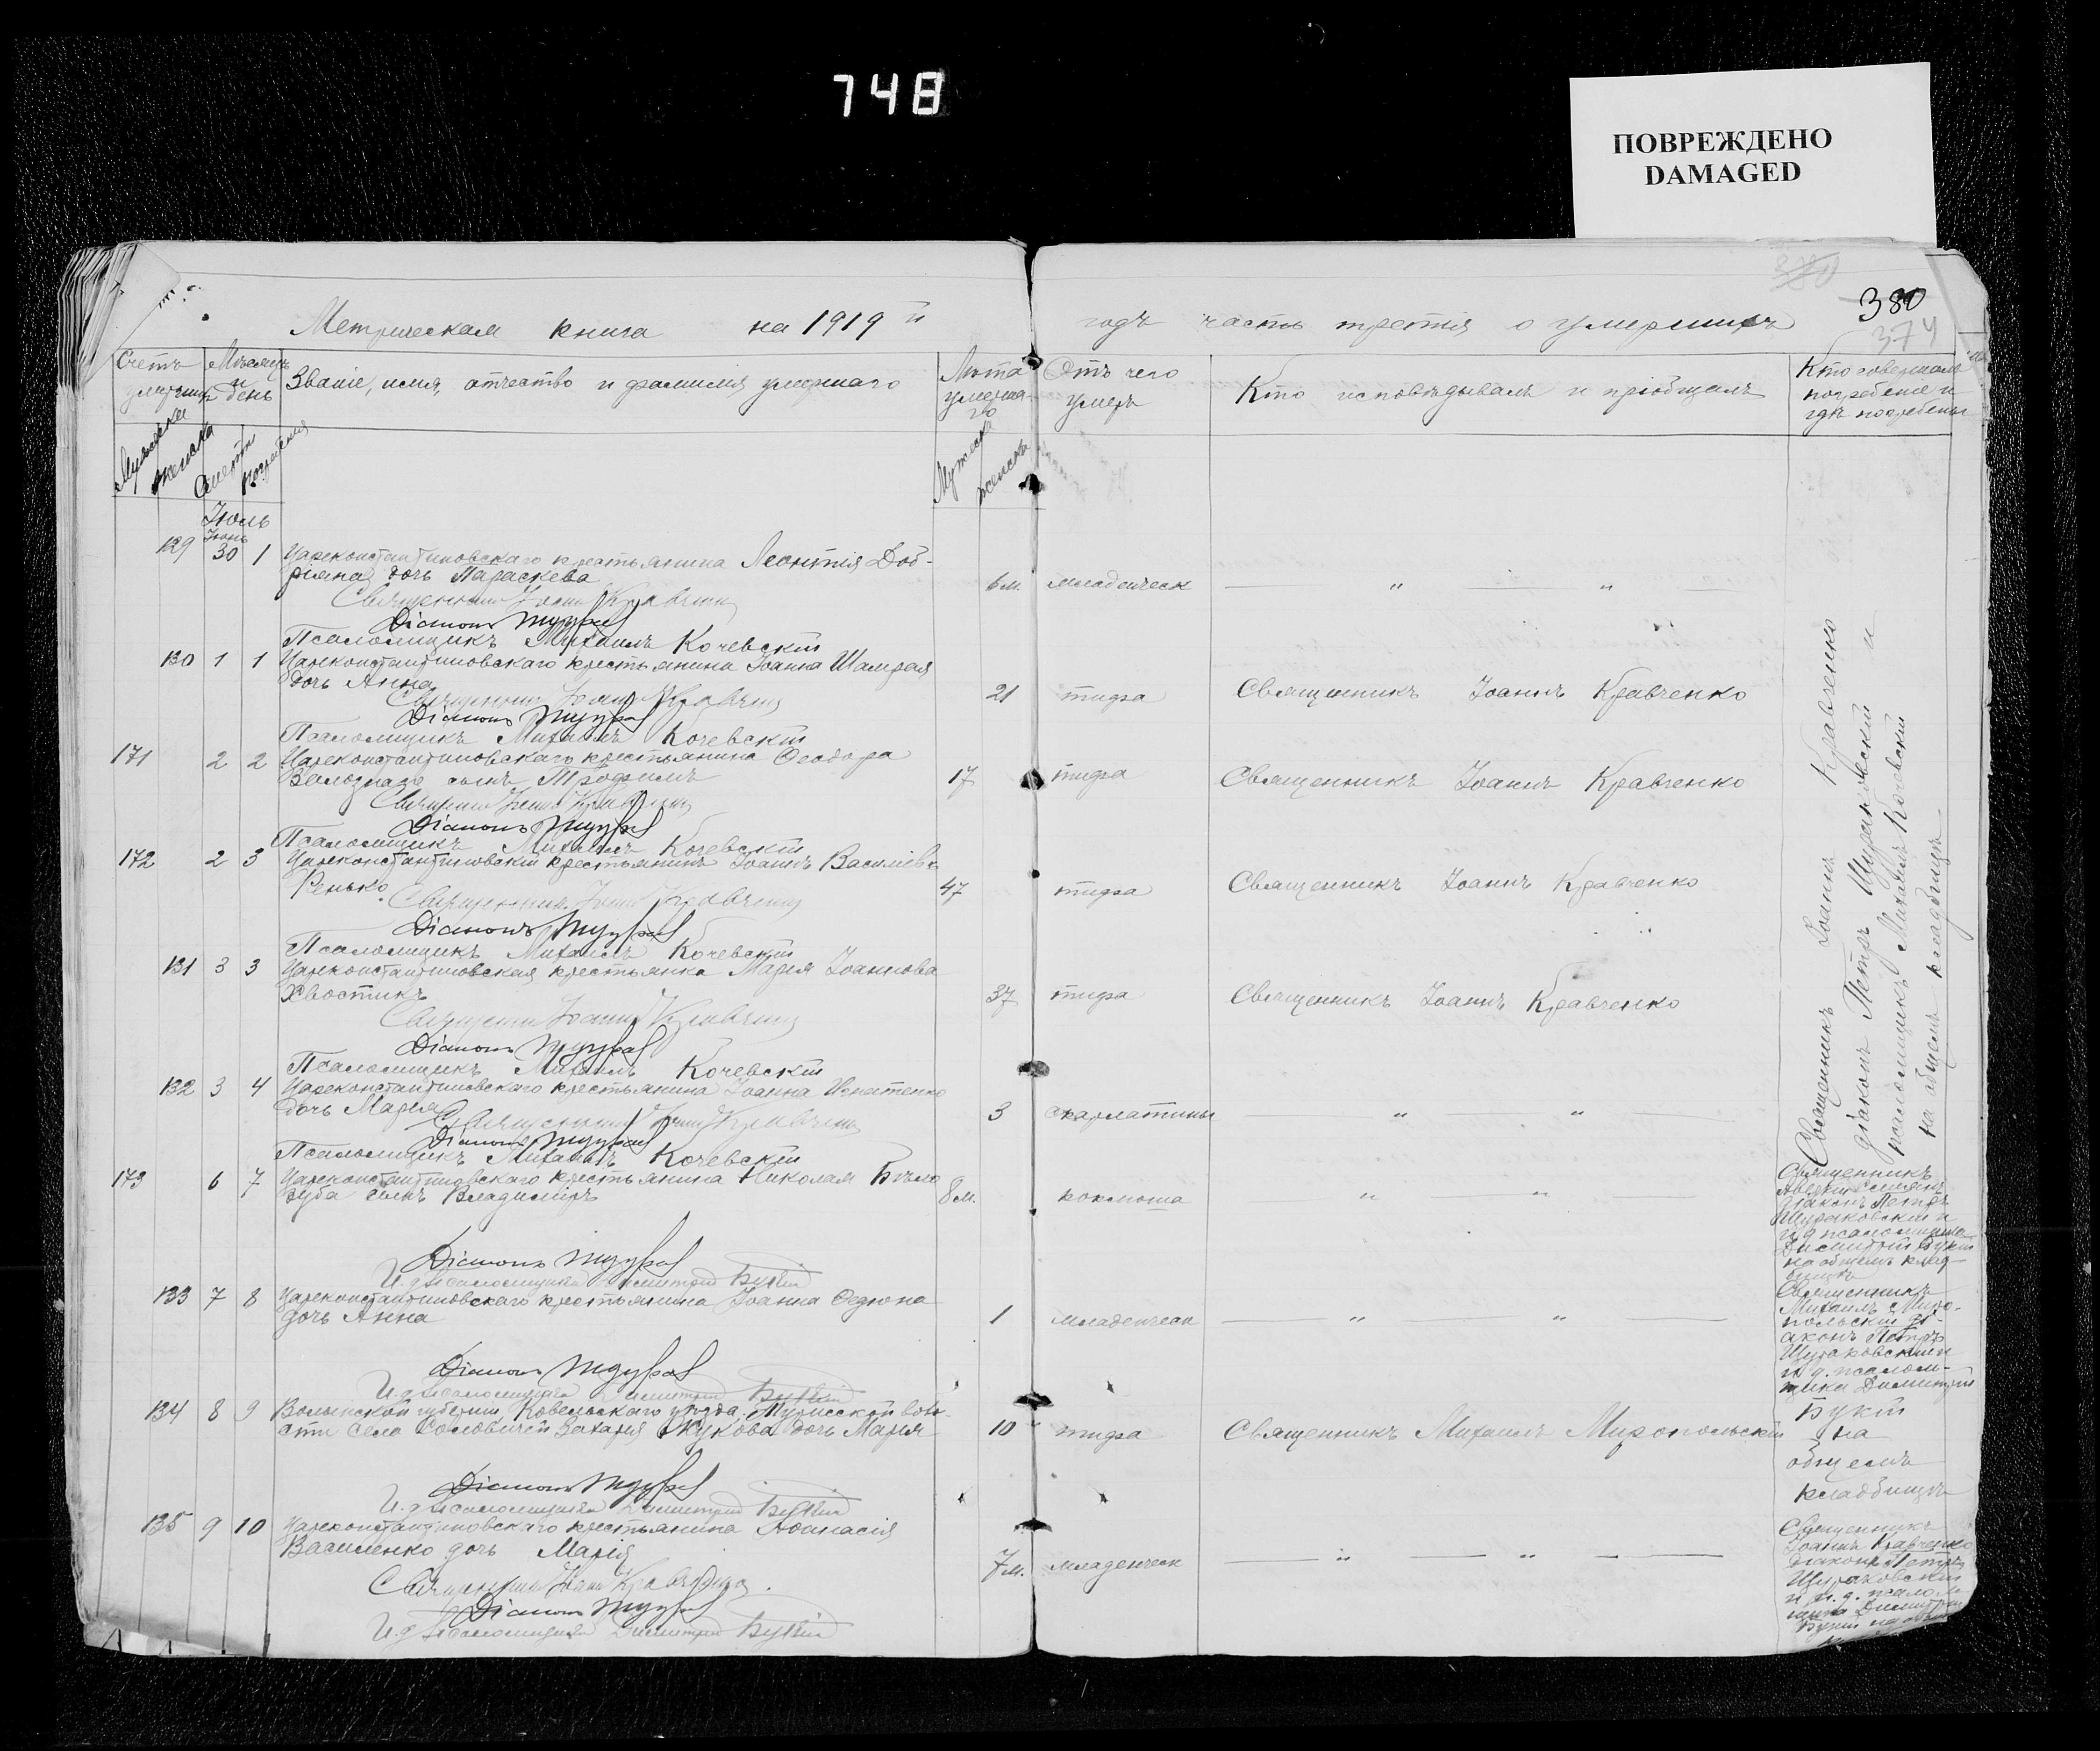 748
ПОВРЕЖДЕНО
DAMAGED
380
374
Метрическая книга на 1919 й годъ часть третія о умершихъ
Счетъ умершихъ
Мѣсяцъ и день
Званіе, имя, отчество и фамилія умершаго
Лѣта умершаго
Отъ чего умеръ
Кто исповѣдывалъ и пріобщалъ
Кто совершалъ погребеніе и гдѣ погребены
Мужска
женска
Смерти
погребенія
Мужска
женска
Іюль
Іюнь
129 30 1 Цареконстантиновскаго крестьянина Леонтія Доб-
ріяна дочь Параскева 6 м. младенческ — " — " —
Священникъ Іоаннъ Кравченко
Діаконъ
Псаломщикъ Михаилъ Кочевскій
130 1 1 Цареконстантиновскаго крестьянина Іоанна Шамрая
дочь Анна 21 тифа Священникъ Іоаннъ Кравченко
Священникъ Іоаннъ Кравченко
Діаконъ
Псаломщикъ Михаилъ Кочевскій
171 2 2 Цареконстантиновскаго крестьянина Ѳеодора
сынъ Трофимъ 17 тифа Священникъ Іоаннъ Кравченко
Священникъ Іоаннъ Кравченко
Діаконъ
Псаломщикъ Михаилъ Кочевскій
172 2 3 Цареконстантиновскій крестьянинъ Іоаннъ Василіевъ
Ренько. 47 тифа Священникъ Іоаннъ Кравченко
Священникъ Іоаннъ Кравченко
Діаконъ
Псаломщикъ Михаилъ Кочевскій
131 3 3 Цареконстантиновская крестьянка Марія Іоаннова
Хвостикъ 37 тифа Священникъ Іоаннъ Кравченко
Священникъ Іоаннъ Кравченко
Діаконъ
Псаломщикъ Михаилъ Кочевскій
132 3 4 Цареконстантиновскаго крестьянина Іоанна Игнатенко
дочь Марія 3 скарлатины — " — " —
Священникъ Іоаннъ Кравченко
Діаконъ
Псаломщикъ Михаилъ Кочевскій
Священникъ Іоаннъ Кравченко
діаконъ Петръ Щураковскій и
псаломщикъ Михаилъ Кочевскій
на общемъ кладбищѣ
173 6 7 Цареконстантиновскаго крестьянина Николая Бѣло
зуба сынъ Владиміръ 8 м. коклюша " " —
Діаконъ
И. д. псаломщика Димитрій Букій
Священникъ
діаконъ Петръ
Щураковскій и
и. д. псаломщика
Димитрій Букій
на общемъ клад-
бищѣ
133 7 8 Цареконстантиновскаго крестьянина Іоанна Ѳедюна
дочь Анна 1 младенческ — " — " —
Діаконъ
И. д. псаломщика Димитрій Букій
Священникъ
Михаилъ Миро-
польскій ді-
аконъ Петръ
Щураковскій и
и. д. псалом-
щика Димитрій
Букій
на
общемъ
кладбищѣ
134 8 9 Волынской губерніи Ковельскаго уѣзда, воло-
сти села Соловичей Захарія Жукова дочь Марія 10 тифа Священникъ Михаилъ Миропольскій
Діаконъ
И. д. псаломщика Димитрій Букій
135 9 10 Цареконстантиновскаго крестьянина Аѳанасія
Василенко дочь Марія 7 м. младенческ — " — " —
Священникъ Іоаннъ Кравченко
Діаконъ
И. д. псаломщика Димитрій Букій
Священникъ
Іоаннъ Кравченко
діаконъ Петръ
Щураковскій
и и. д. псалом
щика Димитрій
Букій